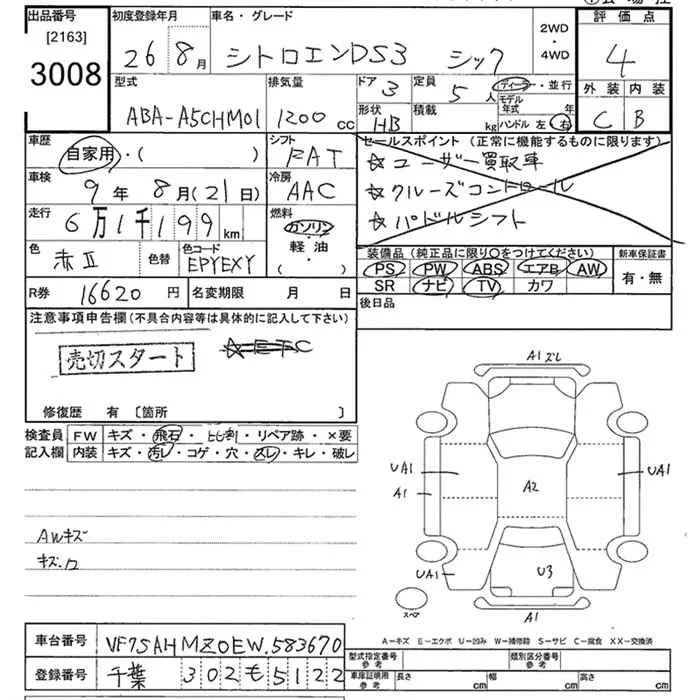 出品番号
[2163]
3008
初度登録年月
26 8月
車名・グレード
シトロエンDS3 シック
2WD
・
4WD
評価点
4
外装 内装
C B
型式
ABA-A5CHM01
排気量
1200 cc
ドア 3
定員 5 人
ディーラー・並行
モデル年式 年
形状 HB
積載 kg
ハンドル 左 右
車歴
自家用・( )
シフト
FAT
車検
9年8月(21日)
冷房
AAC
走行
6万1千199km
燃料
ガソリン
・
軽油
・
( )
色
赤Ⅱ
色替
色コード
EPYEXY
セールスポイント(正常に機能するものに限ります)
☆ユーザー買取車
☆クルーズコントロール
☆パドルシフト
装備品(純正品に限り○をつけてください)
PS PW ABS エアB AW
SR ナビ TV カワ
新車保証書
有・無
R券 16620円
名変期限 月 日
後日品
注意事項申告欄(不具合内容等は具体的に記入して下さい)
売切スタート
☆ETC
修復歴 有 〔箇所 〕
検査員記入欄
FW キズ・飛石・ヒビ割・リペア跡・×要
内装 キズ・汚レ・コゲ・穴・スレ・キレ・破レ
AWキズ
A1ズレ
UA1
A1
A2
UA1
UA1
U3
A1
スペア
A-キズ E-エクボ U-凹み W-補修跡 S-サビ C-腐食 XX-交換済
車台番号 VF7SAHMZ0EW583670
登録番号 千葉 302 も 5122
型式指定番号 参考
類別区分番号 参考
車庫証明用 参考
長さ cm
幅 cm
高さ cm